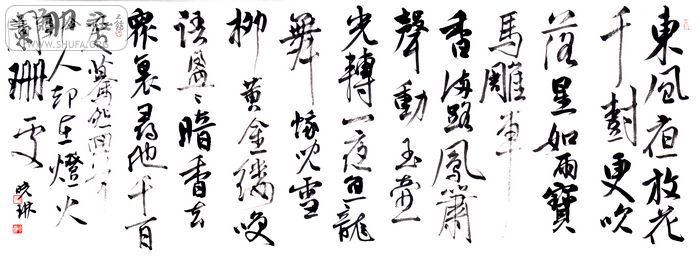 東風夜放花
千樹更吹
落星如雨寶
馬雕車
香滿路鳳簫
聲動玉壺
光轉一夜魚龍
舞蛾兒雪
柳黃金縷笑
語盈々暗香去
眾裏尋他千百
度驀然回首
人却在燈火
闌珊處
晓琳